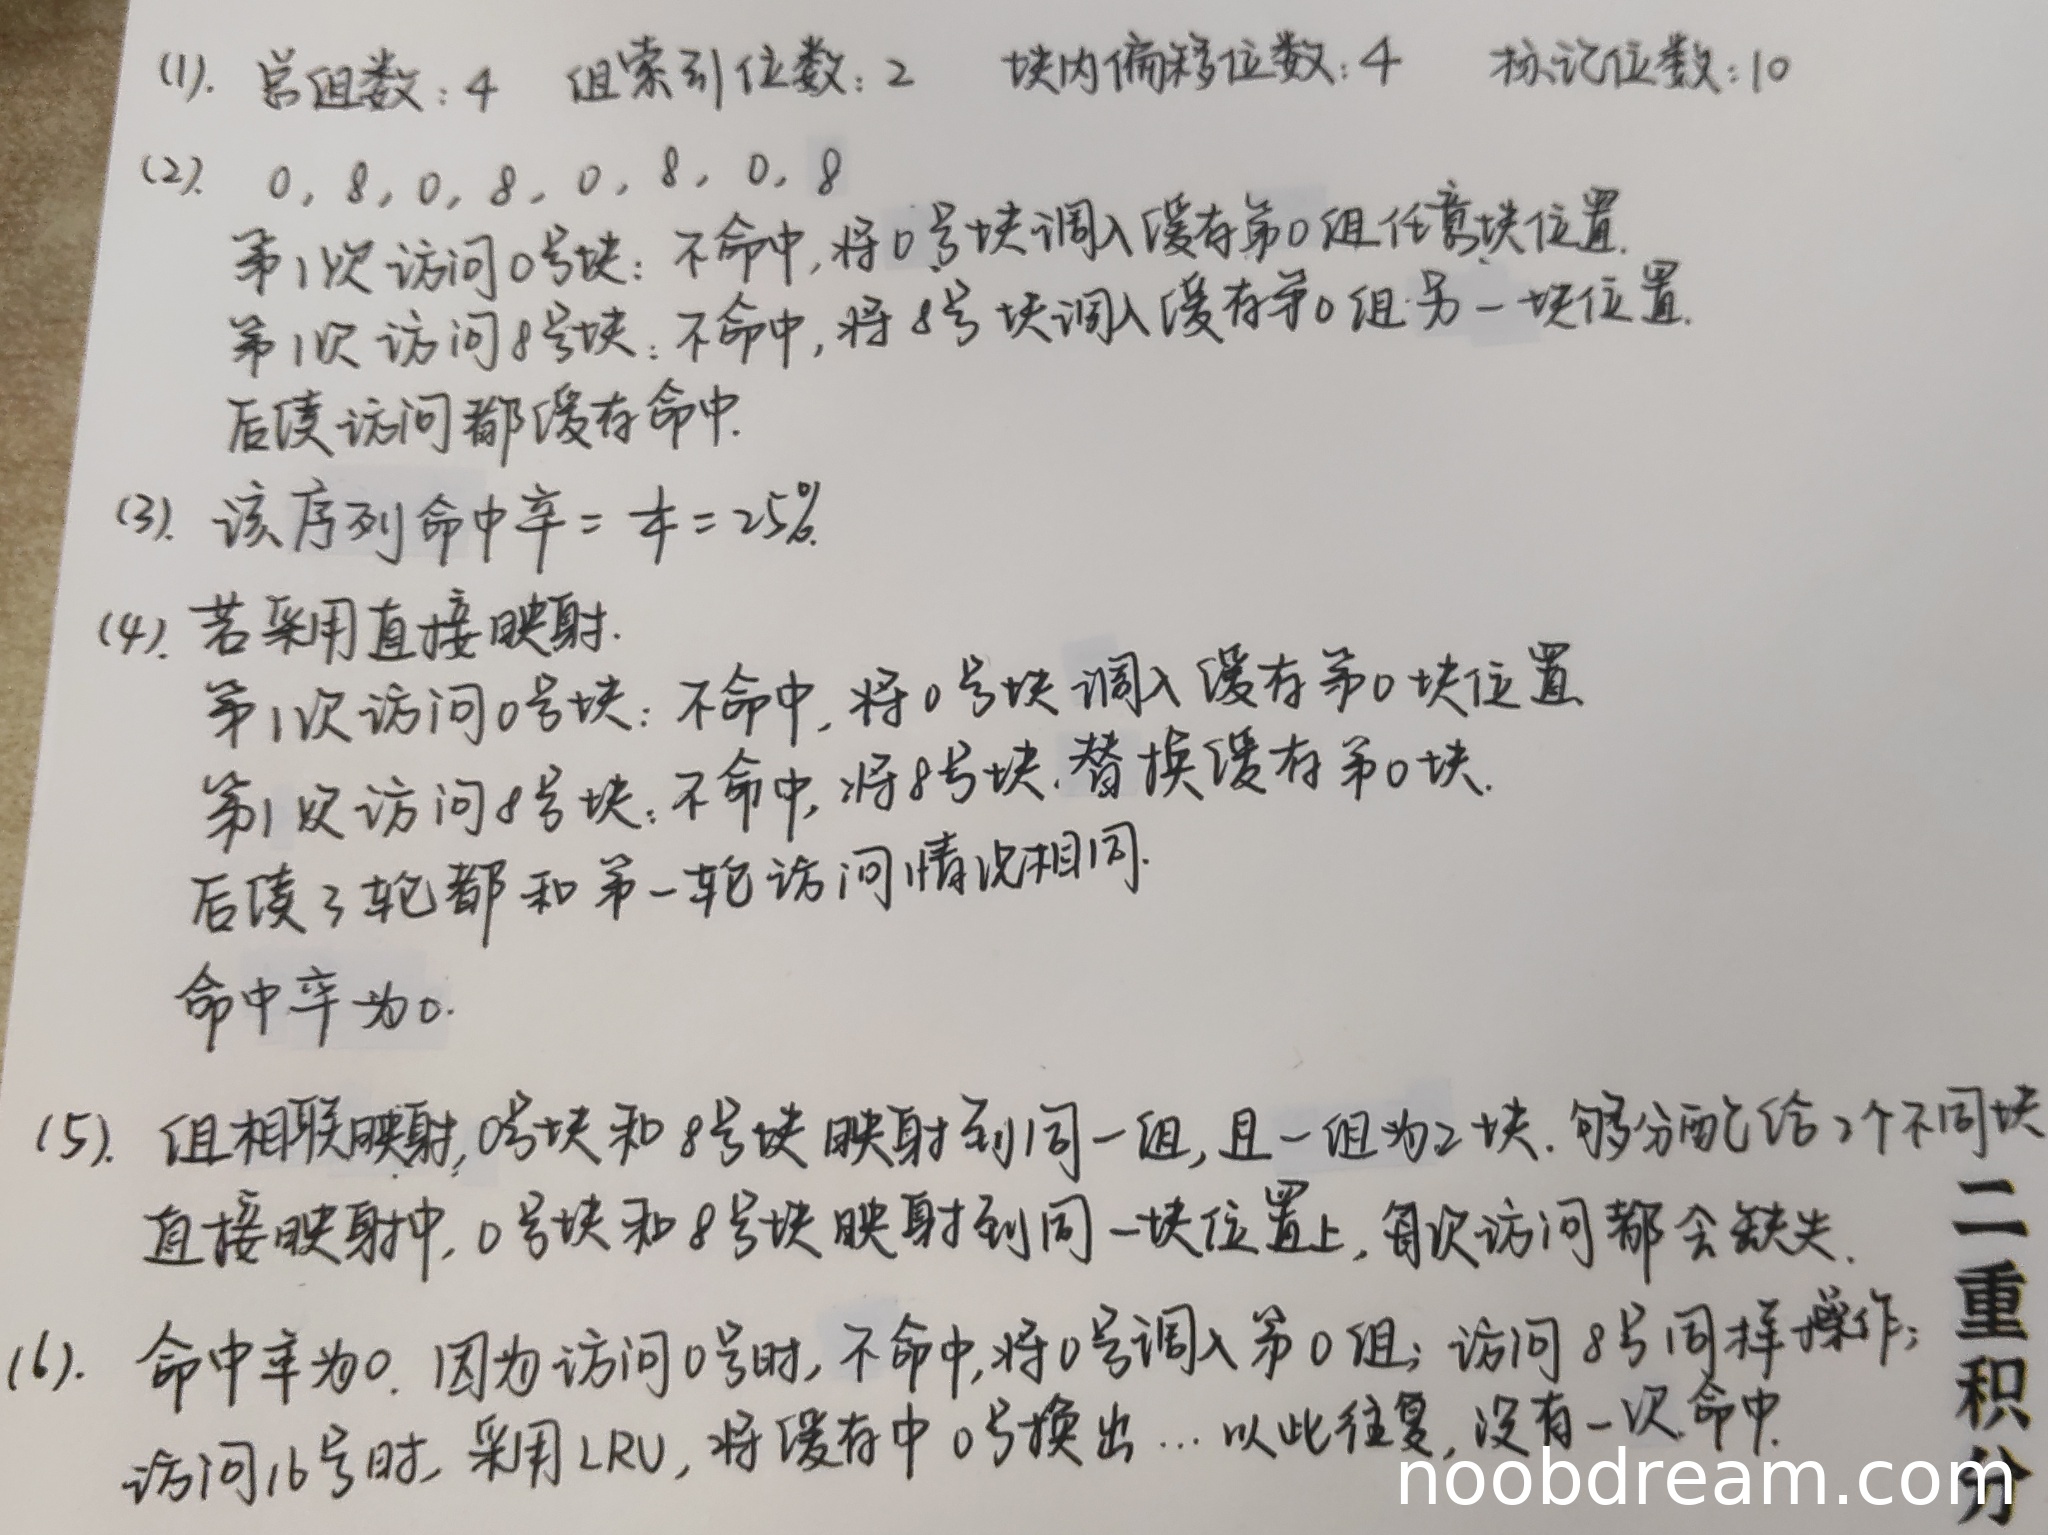 (1). 总组数:4 组索引位数:2 块内偏移位数:4 标记位数:10
(2). 0, 8, 0, 8, 0, 8, 0, 8
第1次访问0号块: 不命中, 将0号块调入缓存第0组任意块位置.
第1次访问8号块: 不命中, 将8号块调入缓存第0组另一块位置.
后续访问都缓存命中.
(3). 该序列命中率 = 1/4 = 25%.
(4). 若采用直接映射.
第1次访问0号块: 不命中, 将0号块调入缓存第0块位置
第1次访问8号块: 不命中, 将8号块替换缓存第0块.
后续3轮都和第一轮访问情况相同.
命中率为0.
(5). 组相联映射, 0号块和8号块映射到同一组, 且一组为2块. 够分配给2个不同块
直接映射中, 0号块和8号块映射到同一块位置上, 每次访问都会缺失.
(6). 命中率为0. 因为访问0号时, 不命中, 将0号调入第0组; 访问8号同样操作;
访问16号时, 采用LRU, 将缓存中0号换出...以此往复, 没有一次命中.
二重积分
noobdream.com